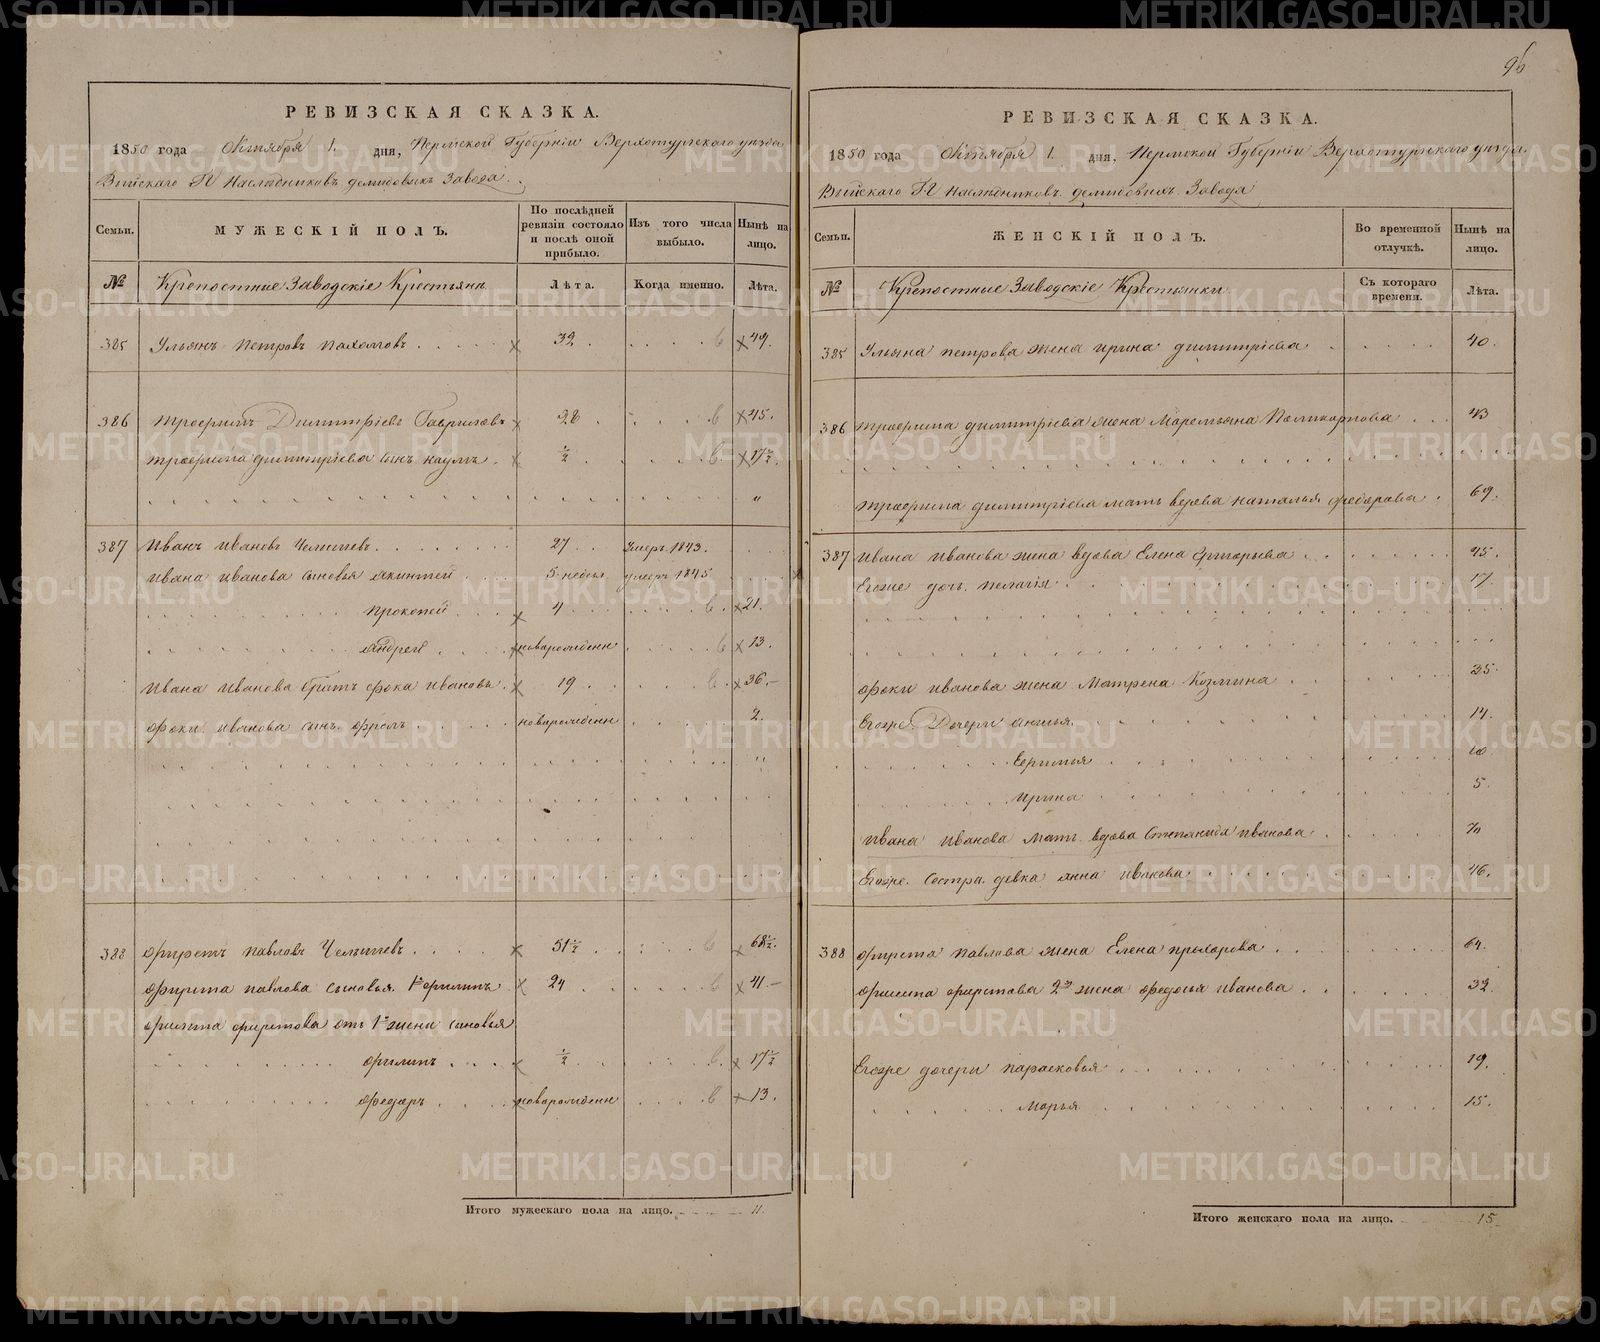 96
РЕВИЗСКАЯ СКАЗКА.
1850 года Октября 1. дня, Пермской Губернiи Верхотурскаго уѣзда
Выйскаго Гг Наслѣдниковъ демидовыхъ Завода.
Семьи.
МУЖЕСКIЙ ПОЛЪ.
По послѣдней ревизiи состояло и послѣ оной прибыло.
Изъ того числа выбыло.
Нынѣ на лицо.
№
Крепостные Заводскiе Крестьяне
Лѣта.
Когда именно.
Лѣта.
385 Ульянъ Петровъ Пахомовъ 32 49.
386 трофимъ Димитрiевъ Гавриловъ 28 45.
трофима димитрiева сынъ наумъ ½ 17½.
387 Иванъ Ивановъ Челышевъ 27 Умеръ 1843.
Ивана Иванова сыновья Акинтей 5 недѣль умеръ 1845
Прокопей 4 21.
Андрей новарожденн 13.
Ивана Иванова братъ фока Ивановъ 19 36.
фоки Иванова сынъ фролъ новарожденн 2.
388 фирстъ павловъ Челышевъ 51½ 68½.
фирста павлова сыновья 1й филипъ 24 41
филипа фирстова отъ 1й жены сыновья
филипъ ½ 17½
федаръ новарожденн 13.
Итого мужескаго пола на лицо. 11.
РЕВИЗСКАЯ СКАЗКА.
1850 года Октября 1. дня, Пермской Губернiи Верхотурскаго уѣзда.
Выйскаго Гг Наслѣдниковъ демидовыхъ Завода
Семьи.
ЖЕНСКIЙ ПОЛЪ.
Во временной отлучкѣ.
Нынѣ на лицо.
№
Крепостные Заводскiе Крестьянки
Съ котораго времени.
Лѣта.
385 Ульяна петрова жена ирина димитрiева 40.
386 трофима димитрiева жена Маремьяна Поликарпова 43
трофима димитрiева мать вдова наталья федарава 69.
387 Ивана Иванова жена вдова Елена Григорьева 45.
Егоже дочь пелагiя 17.
фоки иванова жена Матрена Козмина 35.
Егоже Дочери 14.
10
ирина 5.
Ивана Иванова Мать вдова Степанида Иванова 70
Егоже Сестра девка анна ивакова 46.
388 фирста павлова жена Елена прохорова 64.
филипа фирстава 2я жена федосья иванова 32.
Егоже дочери парасковья 19.
Марья 15.
Итого женскаго пола на лицо. 15
METRIKI.GASO-URAL.RU